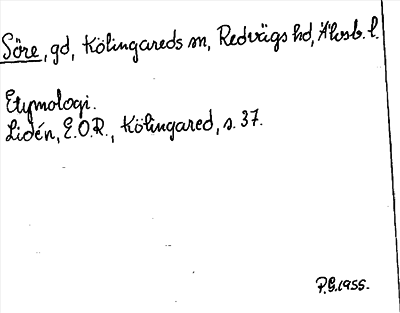 Söre, gd, Kölingareds sn, Redvägs hd, Älvsb. l.
Etymologi.
Lidén, E.O.R., Kölingared, s. 37.
P.G. 1955.